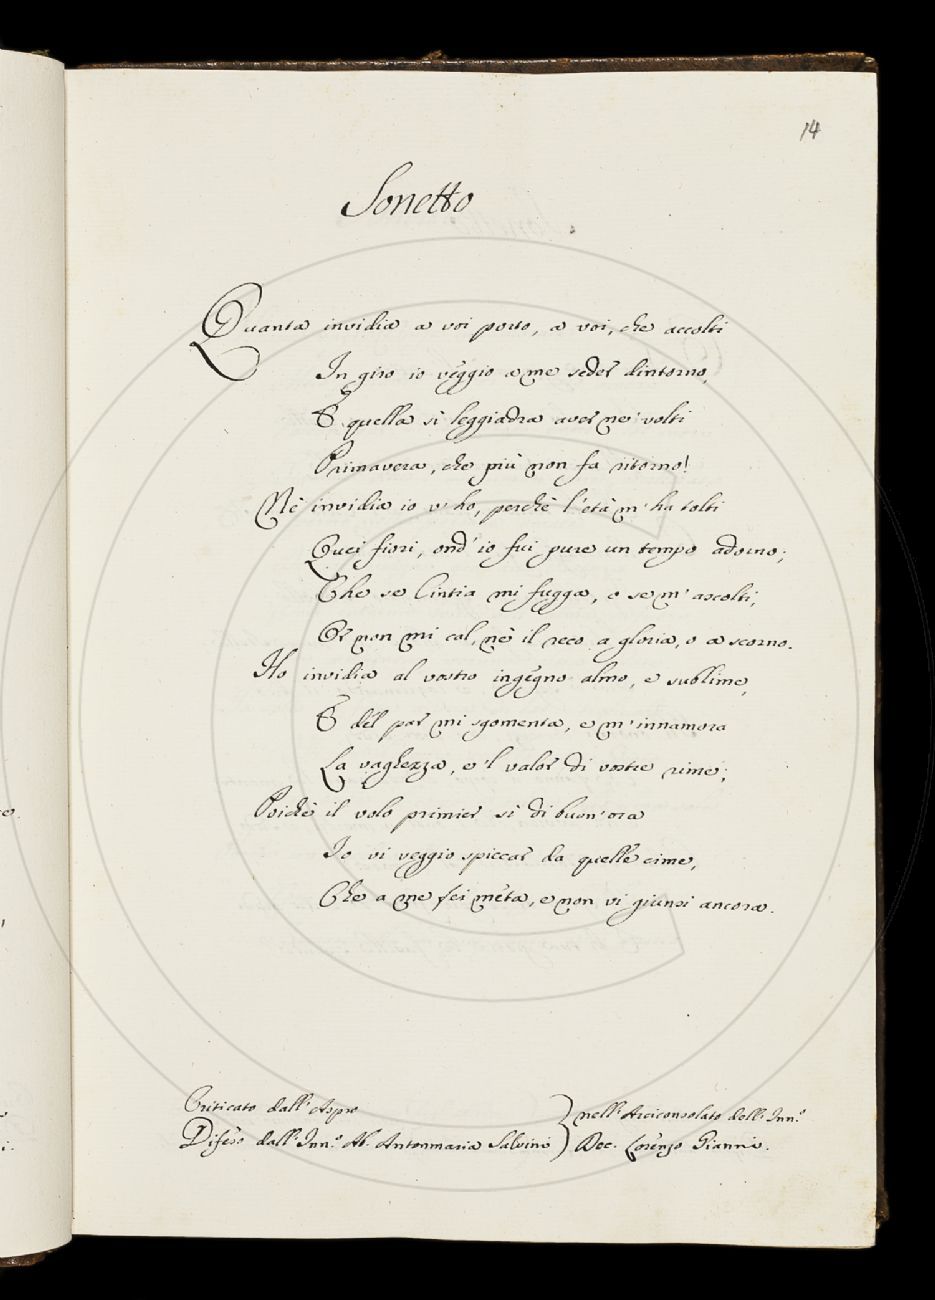 14
Sonetto
Quanta invidia a voi porto, a voi, che accolti
In giro io veggio a me seder dintorno,
E quella sì leggiadra aver ne' volti
Primavera, che più non fa ritorno!
Nè invidia io v' ho, perchè l' età m' ha tolti
Quei fiori, ond' io fui pure un tempo adorno;
Che se Cintia mi fugga, o se m' ascolti,
Or non mi cal, nè il reco a gloria, o a scorno.
Ho invidia al vostro ingegno almo, e sublime,
E del par mi sgomenta, e m' innamora
La vaghezza, e 'l valor di vostre rime;
Poichè il volo primier sì di buon' ora
Io vi veggio spiccar da quelle cime,
Che a me fei mèta, e non vi giunsi ancora.
Criticato dall' Aspro
Difeso dall' Inn.º Ab. Antonmaria Salvini } nell' Arciconsolato dell' Inn.º
Dec. Lorenzo Gianni.